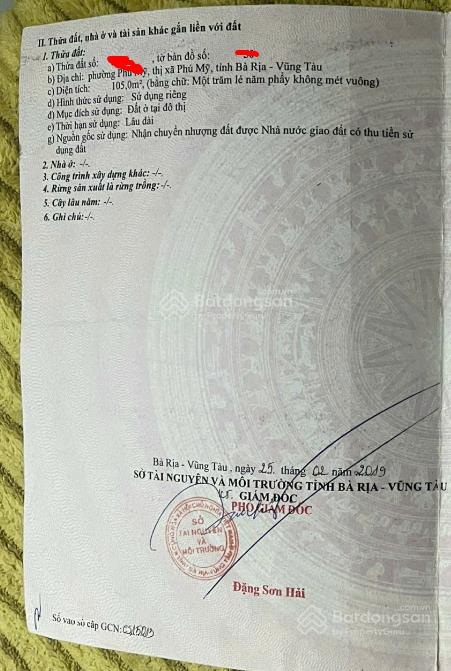 II. Thửa đất, nhà ở và tài sản khác gắn liền với đất
1. Thửa đất:
a) Thửa đất số: , tờ bản đồ số:
b) Địa chỉ: phường Phú Mỹ, thị xã Phú Mỹ, tỉnh Bà Rịa - Vũng Tàu
c) Diện tích: 105,0m², (bằng chữ: Một trăm lẻ năm phẩy không mét vuông)
d) Hình thức sử dụng: Sử dụng riêng
đ) Mục đích sử dụng: Đất ở tại đô thị
e) Thời hạn sử dụng: Lâu dài
g) Nguồn gốc sử dụng: Nhận chuyển nhượng đất được Nhà nước giao đất có thu tiền sử
dụng đất
2. Nhà ở: -/-.
3. Công trình xây dựng khác: -/-.
4. Rừng sản xuất là rừng trồng: -/-.
5. Cây lâu năm: -/-.
6. Ghi chú:-/-.
Batdongsan
by PropertyGuru
.com.vn
Bà Rịa - Vũng Tàu , ngày 25 tháng 02 năm 2019
SỞ TÀI NGUYÊN VÀ MÔI TRƯỜNG TỈNH BÀ RỊA - VŨNG TÀU
KT. GIÁM ĐỐC
PHÓ GIÁM ĐỐC
SỞ
TÀI NGUYÊN
VÀ
MÔI TRƯỜNG
Đặng Sơn Hải
Số vào sổ cấp GCN:
Batdongsan
by PropertyGuru
.com.vn